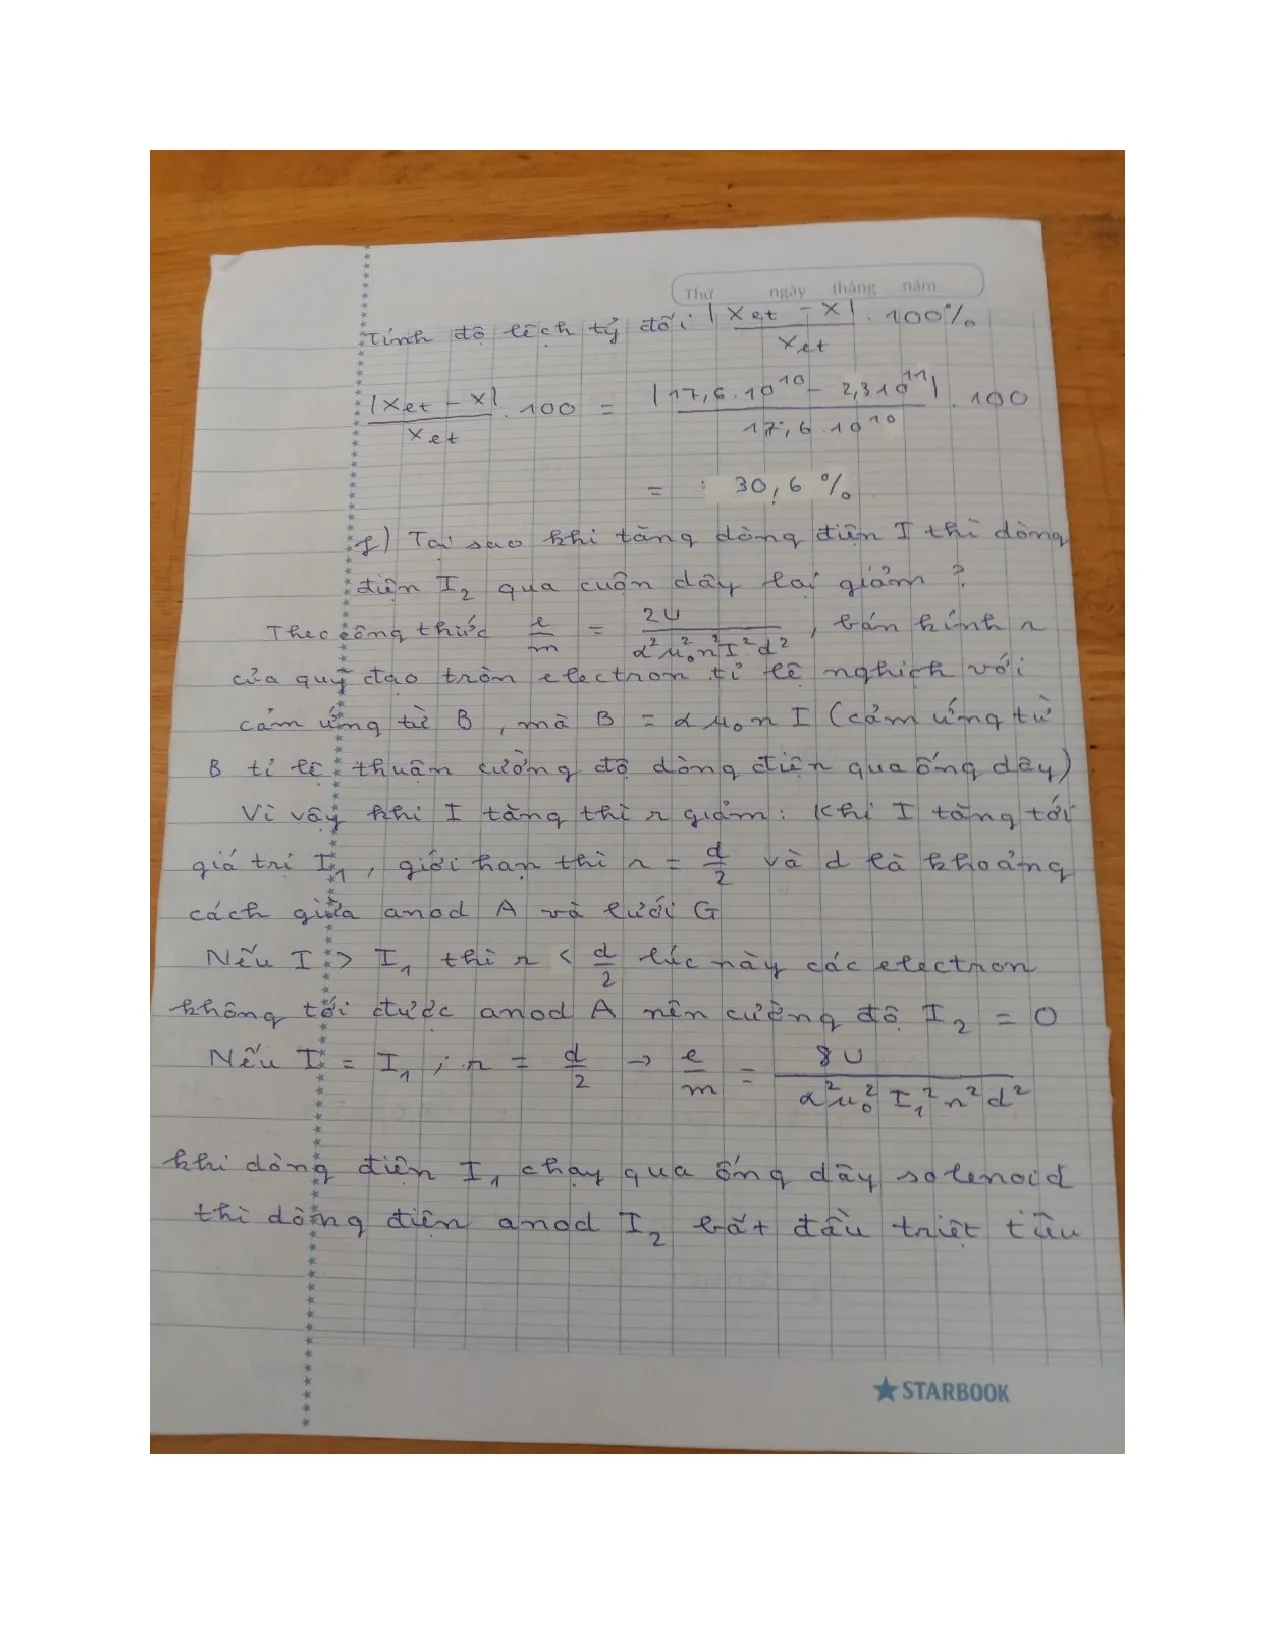 Thứ ngày tháng năm
Tính độ lệch tỷ đối |Xet - X| / Xet . 100%
|Xet - X| / Xet . 100 = |17,6.10^10 - 2,3 10^11| / 17,6.10^10 . 100
= 30,6 %
f) Tại sao khi tăng dòng điện I thì dòng
điện I₂ qua cuộn dây lại giảm ?
Theo công thức e/m = 2U / α²μ₀²n²I²d² , bán kính r
của quỹ đạo tròn electron tỉ lệ nghịch với
cảm ứng từ B , mà B = αμ₀nI (cảm ứng từ
B tỉ lệ thuận cường độ dòng điện qua ống dây)
Vì vậy khi I tăng thì r giảm : Khi I tăng tới
giá trị I₁ , giới hạn thì r = d/2 và d là khoảng
cách giữa anod A và lưới G
Nếu I > I₁ thì r < d/2 lúc này các electron
không tới được anod A nên cường độ I₂ = 0
Nếu I = I₁ ; r = d/2 → e/m = 8U / α²μ₀²I₁²n²d²
khi dòng điện I₁ chạy qua ống dây solenoid
thì dòng điện anod I₂ bắt đầu triệt tiêu
STARBOOK